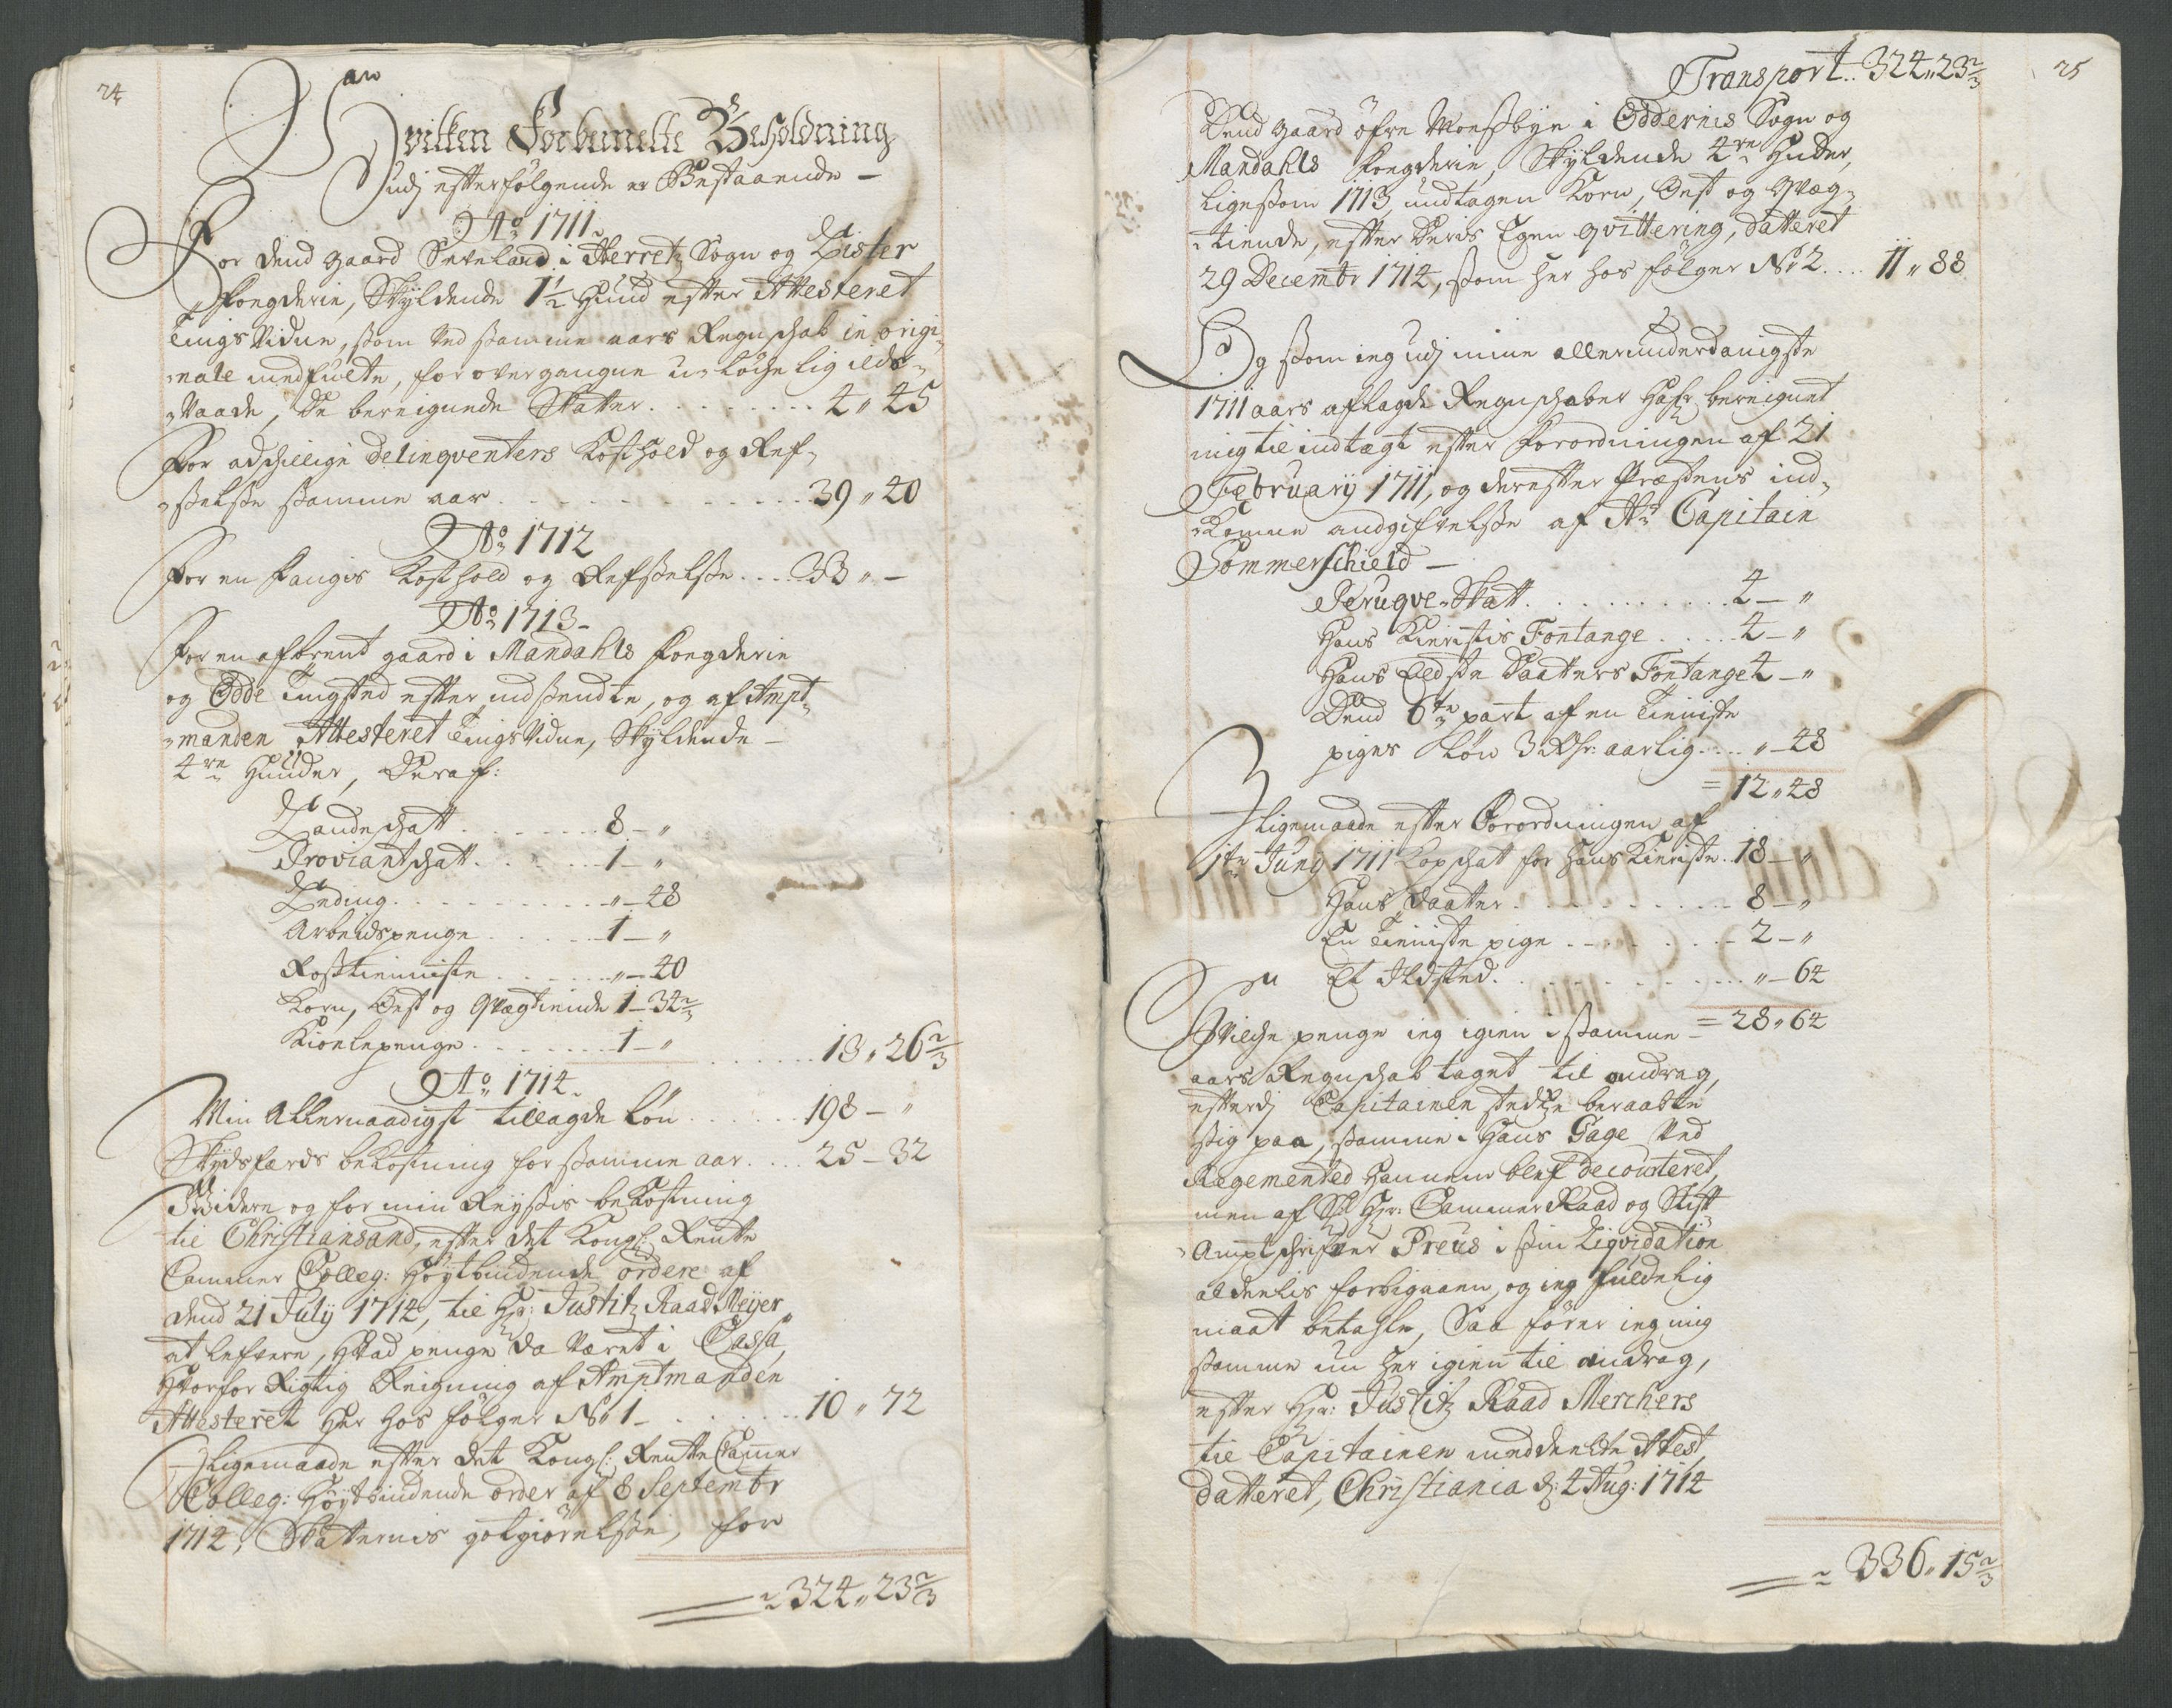 24
Hvilken Forbemelte Beholdning
udj efterfølgende er Bestaaende –
Ao 1711
For dend gaard Seveland i Herretz Sogn og Lister
Fougderie, Skÿldende 1½ Huud efter Attesteret
Tings Vidne, som ved samme aars Regnschab in origi-
nale medfulte, for overgangne u-løchelig ilds-
Vaade, De bereignede Skatter . . . . 4 " 45
For adschillige delinqventers Kosthold og Ref-
selse samme aar . . . . 39 " 20
Ao 1712
For en Fangis Kosthold og Refselse . . . . 33 " –
Ao 1713 –
For en afbrent gaard i Mandahls Fougderie
og Odde Tingsted efter indsendte, og af Ampt-
manden Attesteret Tings Vidne, Skÿldende –
4re Huuder, Deraf:
Landschatt . . . . 8 – "
Proviantschatt . . . . 1 – "
Leding . . . . " – 48
Arbeidspenge . . . . 1 – "
Rosstienniste . . . . " – 20
Korn, Ost og Qvægtiende 1 – 34⅔
Kiørlepenge . . . . 1 – "
. . . . 13 " 26⅔
Ao 1714
Min Allernaadigst tillagde løn . . . . 198 – "
Skÿdsfærds bekostning for samme aar . . . . 25 – 32
Widere og for min Reÿsis bekostning
til Christiansand, efter det Kongl: Rente
Cammer Colleg: Høÿtbÿdende ordere af
dend 21 Julÿ 1714, til Hr: Justitz Raad Meÿer
at lefvere, Hvad penge da været i Cassa,
Hvorfor Rigtig Reigning af Amptmanden
Attesteret Her hos følger No 1 – . . . . 10 " 72
Jligemaade efter det Kongl: Rente Cammer
Colleg: Høÿtbÿdende order af 8 Septembr
1714, Skatternis gotgiørelse, for
324 " 23⅔
25
Transport . . 324 " 23⅔
Dend gaard öfre Mosbÿe i Oddernis Sogn og
Mandahls Fougderie, Skÿldende 4re Huder,
ligesom 1713 undtagen Korn, Ost og Qvæg-
tiende, efter Deris Egen qvittering, datteret
29 Decembr 1714, som her hos følger No 2 . . . . 11 " 88
Og som ieg udj mine allerunderdanigste
1711 aars aflagde Regnschaber Hafr bereignet
mig til indtægt efter Forordningen af 21
Februarÿ 1711, og derefter Præstens ind-
Komne andgifvelse af Hr Capitain
Sommerschield –
Peruqve-Skatt . . . . 4 – "
Hans Kieristis Fontange . . . . 4 – "
Hans Eldste Daatters Fontange 4 – "
Dend 6te part af en Tieniste
piges løn 3 Rdr: aarlig . . . . " – 48
= 12 " 48
Jligemaade efter Forordningen af
1te Junÿ 1711 Kopschat for Hans Kieriste . 18 – "
Hans Daatter . . . . 8 – "
En Tieniste pige . . . . 2 – "
Et Ildsted . . . . " – 64
= 28 " 64
Hvilche penge ieg igien i samme
aars Regnschab taget til andrag,
efterdj Capitainen stedtze beraabte
sig paa, samme i Hans Gage ved
Regementted Hannem blef decourteret,
men af Sl Hr: Cammer Raad og Stift
Amptschrifver Preus i sin Liqvidation
aldeelis forbigaaen, og ieg fuldelig
maat betahle, Saa fører ieg mig
samme nu her igien til andrag,
efter Hr: Justitz Raad Merchers
til Capitainen meddeelte Attest,
datteret, Christiania d: 4 Aug: 1714
336 " 15⅔